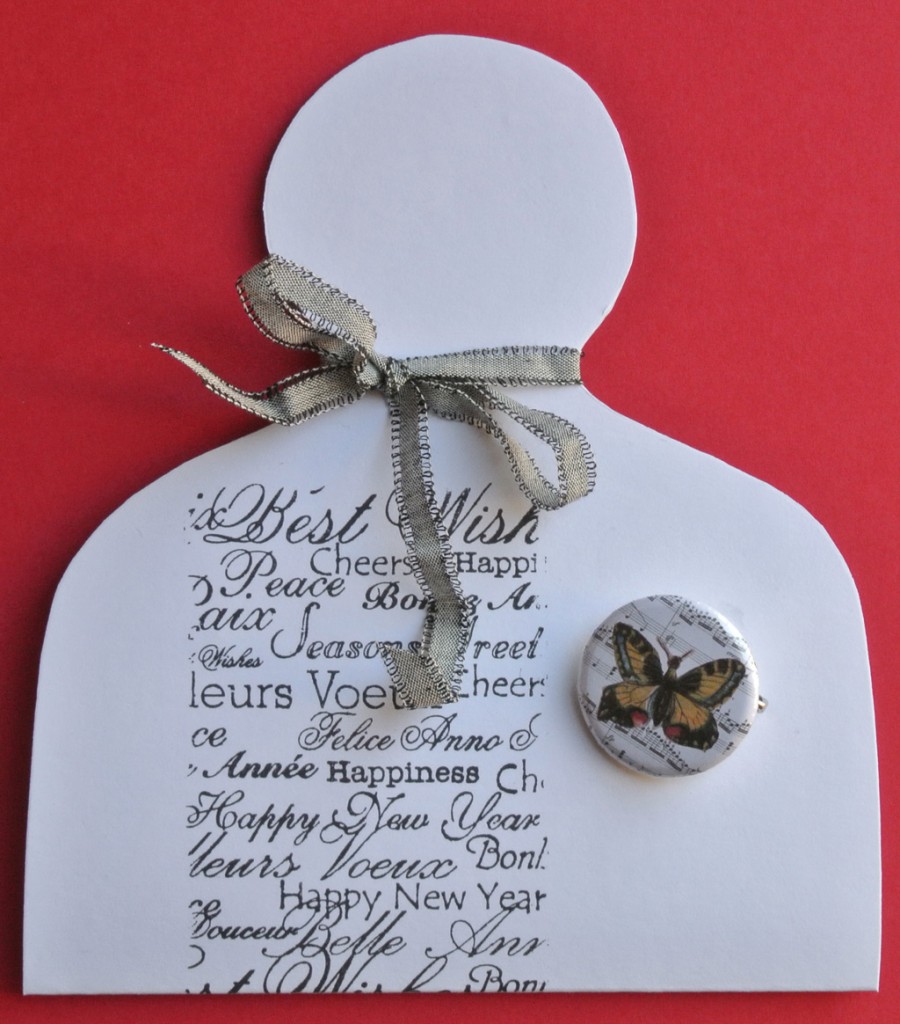 ix Best Wish
Cheers Happi
Peace
aix Bonne An
Seasons Greet
Wishes
leurs Voeux Cheers
ce Felice Anno
Année Happiness Ch
Happy New Year
leurs Voeux Bonh
ce Happy New Year
Douceur Belle Ann
st Wishes Bon